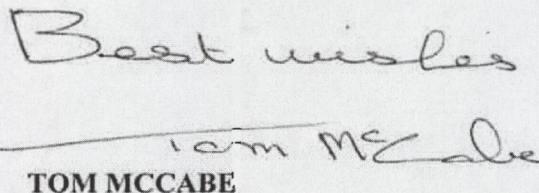 Best wishes
Tom McCabe
TOM MCCABE